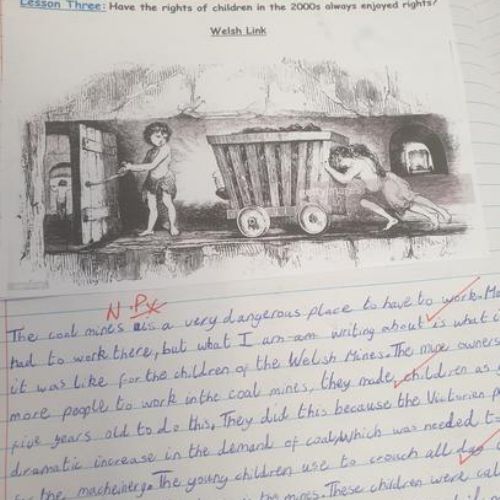 Lesson Three: Have the rights of children in the 2000s always enjoyed rights?
Welsh Link
gettyimages
N.P x
The coal mines is a very dangerous place to have to work.
had to work there, but what I am am writing about is what
it was like for the children of the Welsh Mines. The mine owners
more people to work in the coal mines, they made children as
five years old to do this. They did this because the Victorian
dramatic increase in the demand of coal, Which was needed
for the macheinerg. The young children use to crouch all day
the mines. These children were